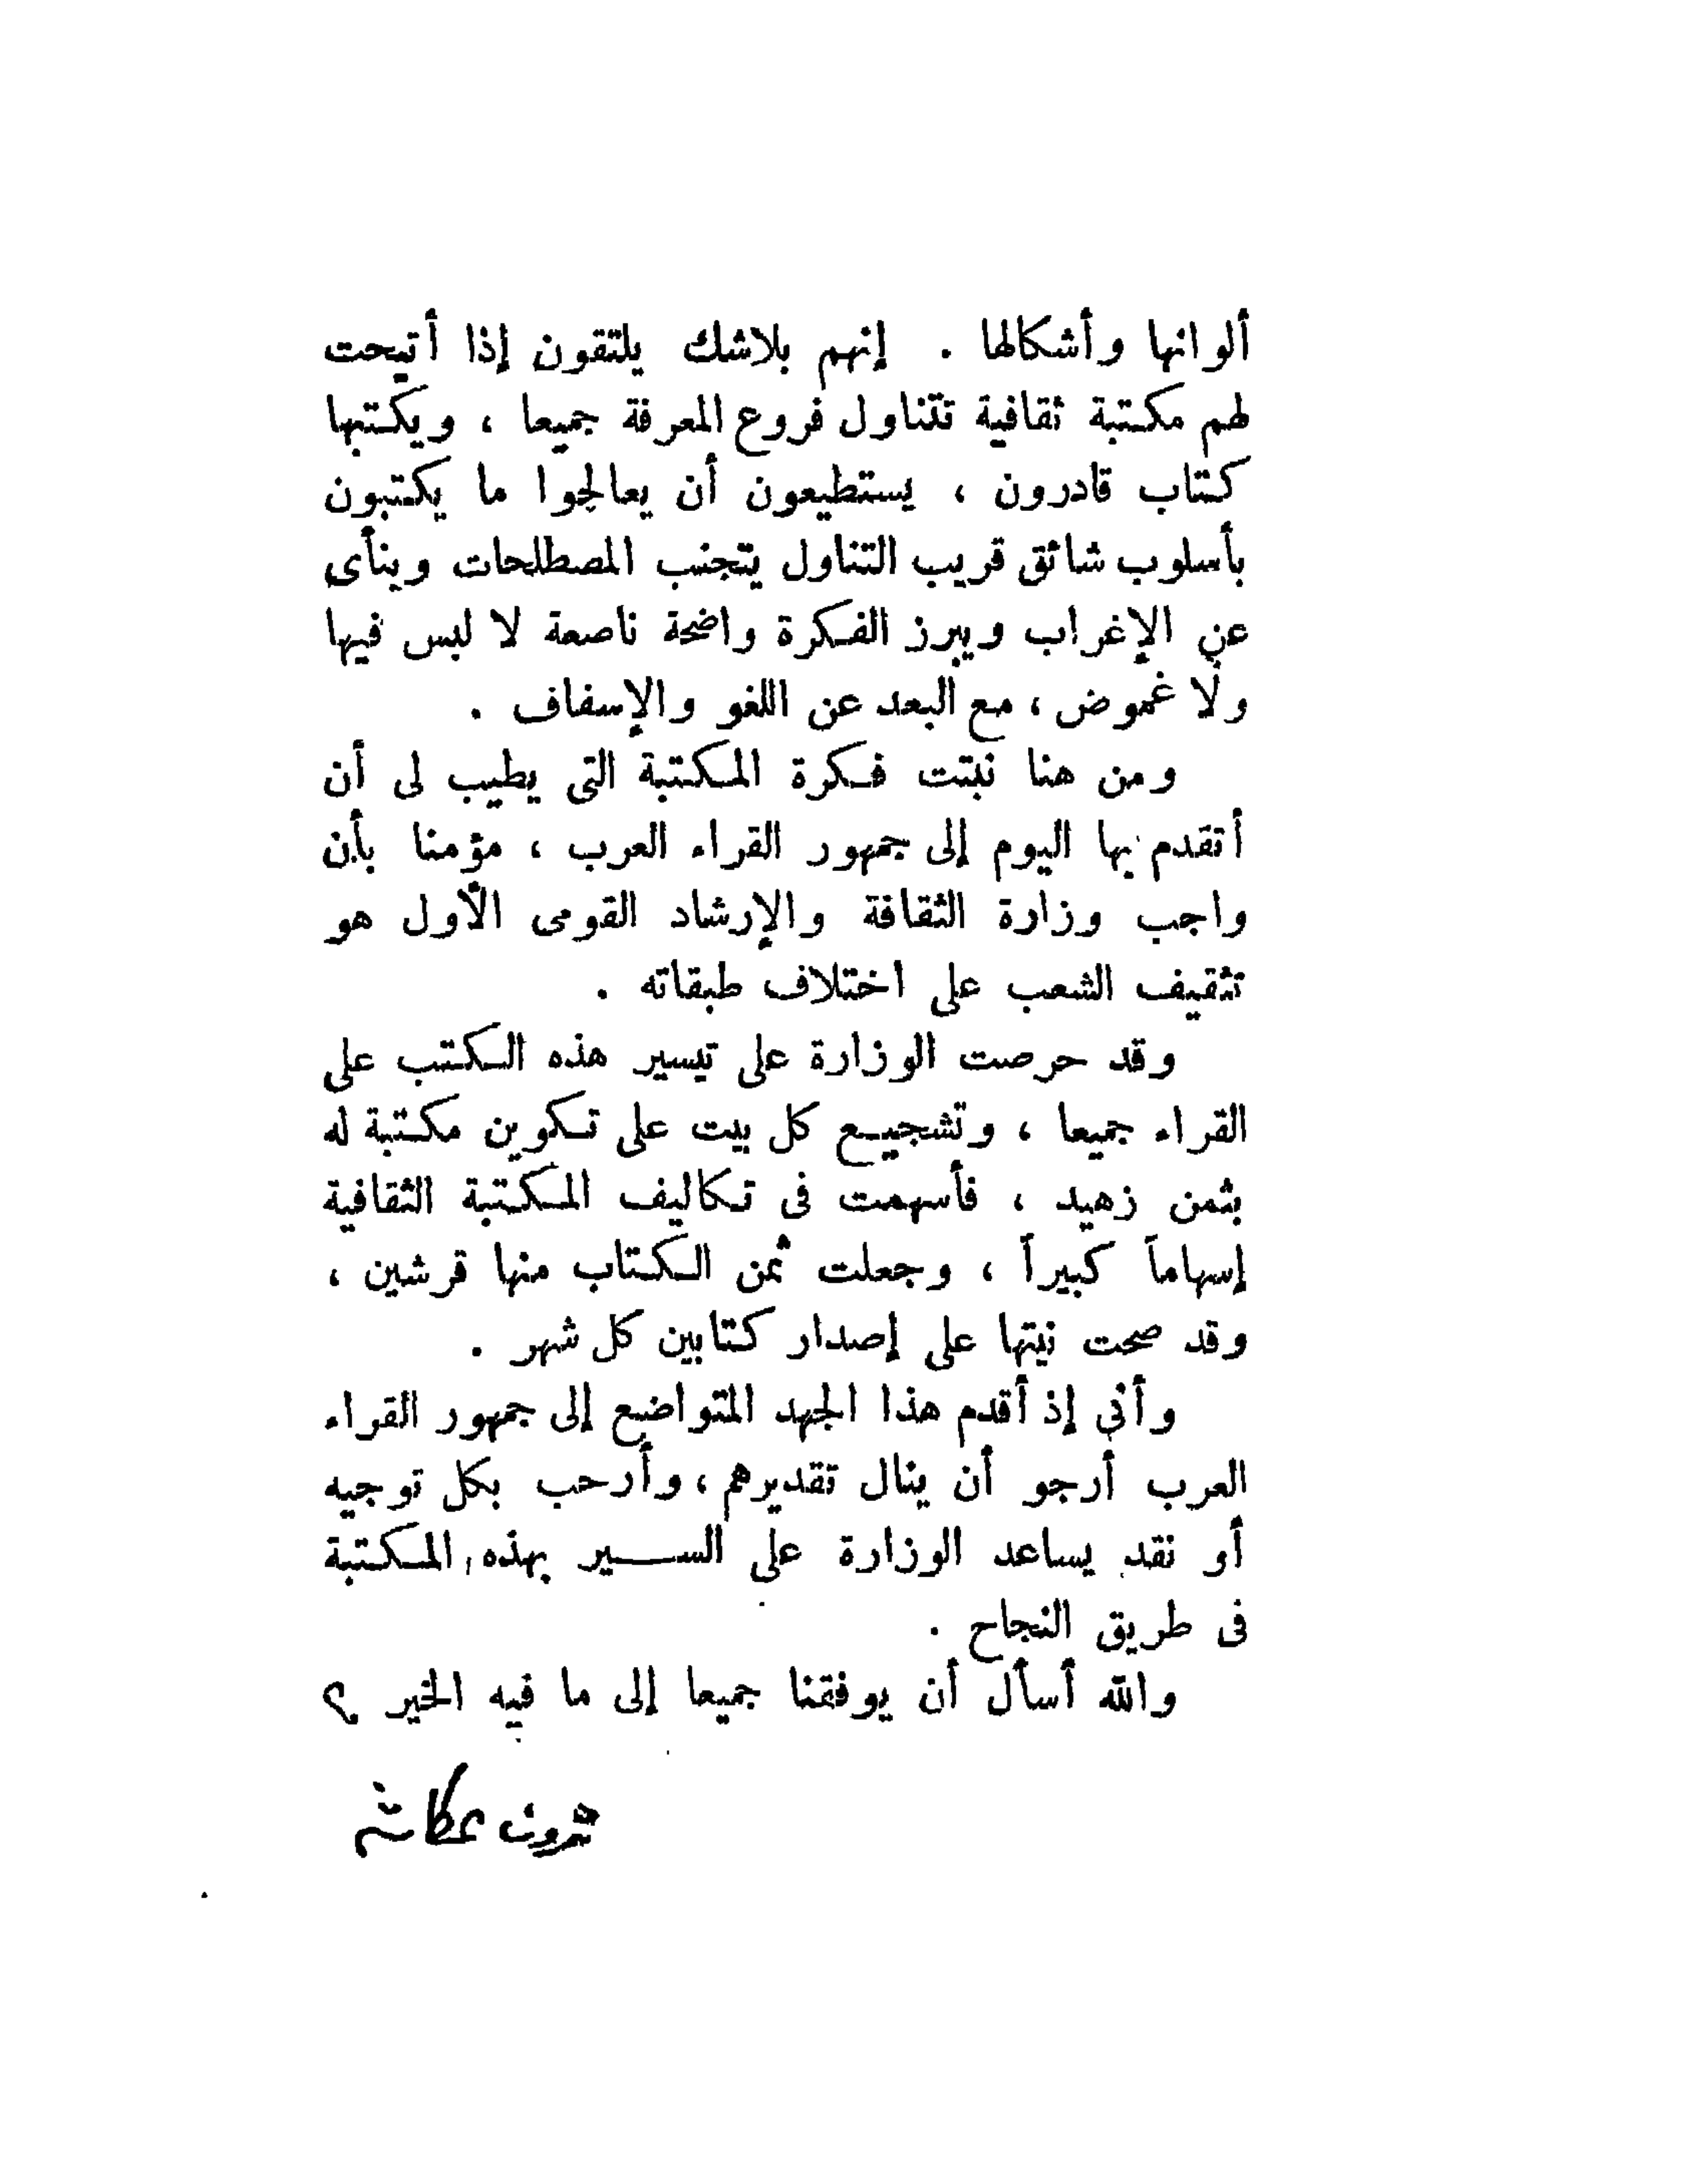 ألوانها وأشكالها . إنهم بلاشك يلتقون إذا أتيحت
لهم مكتبة ثقافية تتناول فروع المعرفة جميعا ، ويكتبها
كتاب قادرون ، يستطيعون أن يعالجوا ما يكتبون
بأسلوب شائق قريب التناول يتجنب المصطلحات وينأى
عن الإغراب ويبرز الفكرة واضحة ناصعة لا لبس فيها
ولا غموض ، مع البعد عن اللغو والإسفاف .
ومن هنا نبتت فكرة المكتبة التى يطيب لى أن
أتقدم بها اليوم إلى جمهور القراء العرب ، مؤمنا بأن
واجب وزارة الثقافة والإرشاد القومى الأول هو
تثقيف الشعب على اختلاف طبقاته .
وقد حرصت الوزارة على تيسير هذه الكتب على
القراء جميعا ، وتشجيع كل بيت على تكوين مكتبة له
بثمن زهيد ، فأسهمت فى تكاليف المكتبة الثقافية
إسهاماً كبيراً ، وجعلت ثمن الكتاب منها قرشين ،
وقد صحت نيتها على إصدار كتابين كل شهر .
وأنى إذ أقدم هذا الجهد المتواضع إلى جمهور القراء
العرب أرجو أن ينال تقديرهم ، وأرحب بكل توجيه
أو نقد يساعد الوزارة على السير بهذه المكتبة
فى طريق النجاح .
والله أسأل أن يوفقنا جميعا إلى ما فيه الخير ؟
ثروت عكاشه